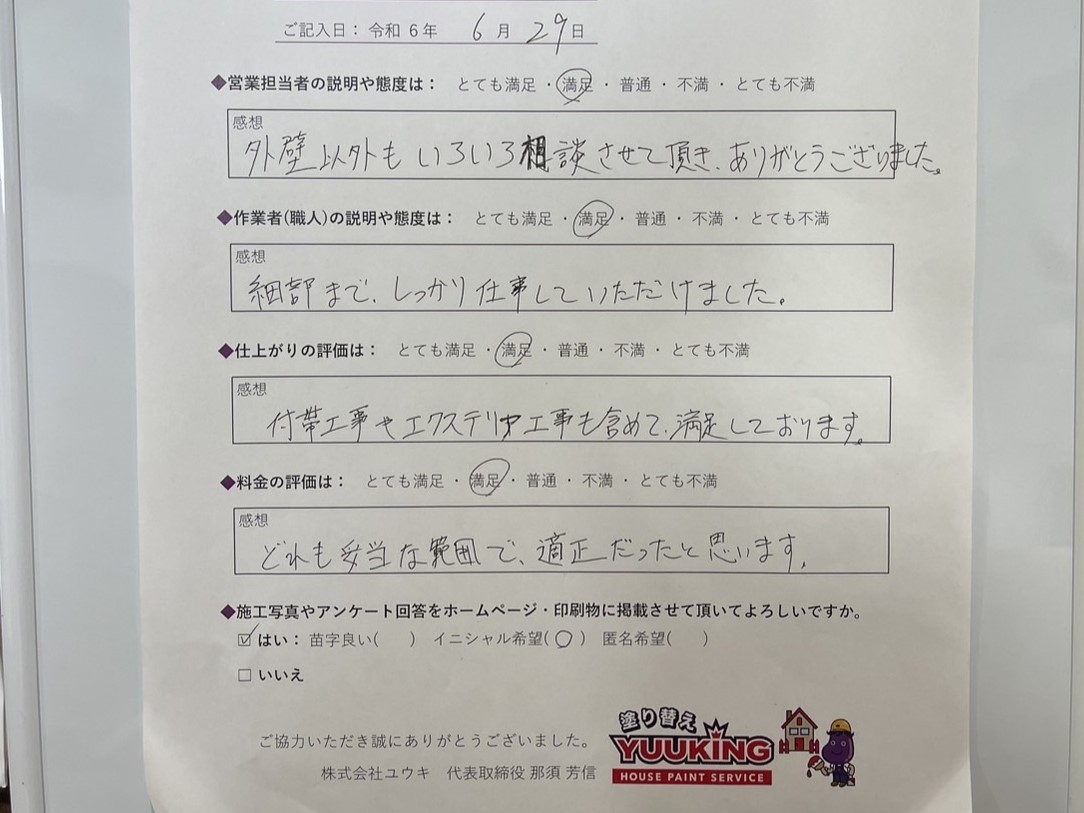 ご記入日：令和 6年 6月 29日
◆営業担当者の説明や態度は： とても満足 ・ 満足 ・ 普通 ・ 不満 ・ とても不満
感想
外壁以外もいろいろ相談させて頂き、ありがとうございました。
◆作業者(職人)の説明や態度は： とても満足 ・ 満足 ・ 普通 ・ 不満 ・ とても不満
感想
細部まで、しっかり仕事していただけました。
◆仕上がりの評価は： とても満足 ・ 満足 ・ 普通 ・ 不満 ・ とても不満
感想
付帯工事やエクステリア工事も含めて、満足しております。
◆料金の評価は： とても満足 ・ 満足 ・ 普通 ・ 不満 ・ とても不満
感想
どれも妥当な範囲で、適正だったと思います。
◆施工写真やアンケート回答をホームページ・印刷物に掲載させて頂いてよろしいですか。
☑ はい： 苗字良い( ) イニシャル希望(○) 匿名希望( )
□ いいえ
ご協力いただき誠にありがとうございました。
株式会社ユウキ 代表取締役 那須 芳信
塗り替え
YUUKING
HOUSE PAINT SERVICE